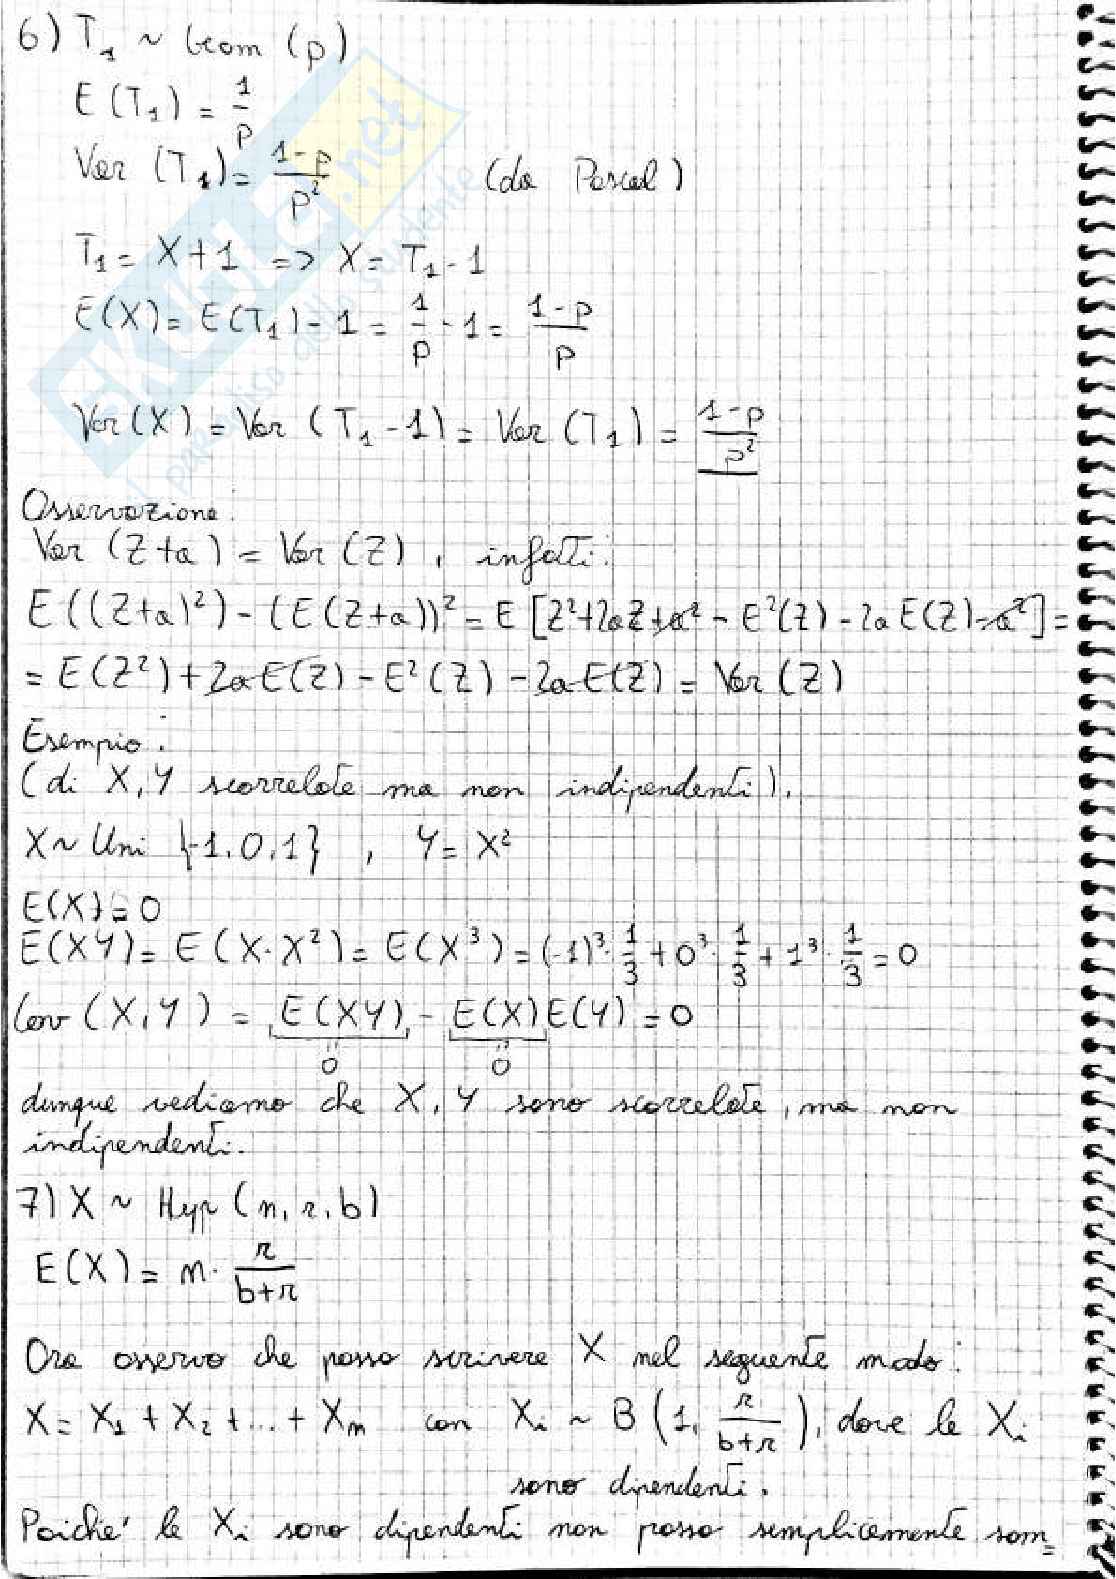 6) T₁ ~ Geom (p)
E(T₁) = 1/p
Var (T₁) = (1-p)/p² (da Pascal)
T₁ = X+1 => X = T₁-1
E(X) = E(T₁) - 1 = 1/p - 1 = (1-p)/p
Var(X) = Var (T₁-1) = Var (T₁) = (1-p)/p²
Osservazione:
Var (Z+a) = Var (Z), infatti:
E((Z+a)²) - (E(Z+a))² = E[Z²+2aZ+a² - E²(Z) - 2aE(Z) - a²] =
= E(Z²) + 2aE(Z) - E²(Z) - 2aE(Z) = Var (Z)
Esempio:
(di X, Y scorrelate ma non indipendenti).
X ~ Uni {-1, 0, 1} , Y = X²
E(X) = 0
E(XY) = E(X·X²) = E(X³) = (-1)³·1/3 + 0³·1/3 + 1³·1/3 = 0
Cov (X,Y) = E(XY) - E(X)E(Y) = 0
0 0
dunque vediamo che X, Y sono scorrelate, ma non
indipendenti.
7) X ~ Hyp (n, r, b)
E(X) = n· r/(b+r)
Ora osservo che posso scrivere X nel seguente modo:
X = X₁ + X₂ + ... + Xₙ con Xᵢ ~ B (1, r/(b+r)), dove le Xᵢ
sono dipendenti.
Poiche' le Xᵢ sono dipendenti non posso semplicemente som=
SKUOLA.net
il paradiso dello studente